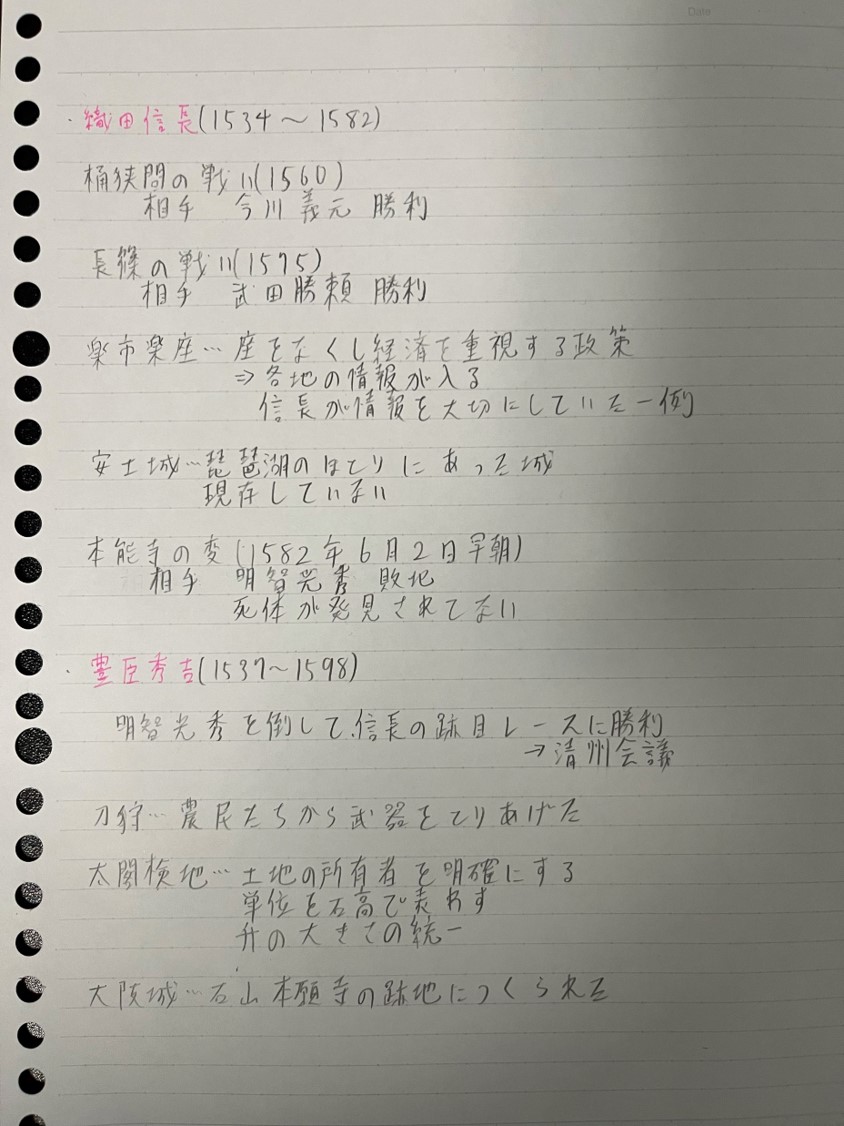 Date
・織田信長(1534～1582)
桶狭間の戦い(1560)
相手 今川義元 勝利
長篠の戦い(1575)
相手 武田勝頼 勝利
楽市楽座…座をなくし経済を重視する政策
⇒各地の情報が入る
信長が情報を大切にしていた一例
安土城…琵琶湖のほとりにあった城
現存していない
本能寺の変(1582年6月2日早朝)
相手 明智光秀 敗北
死体が発見されてない
・豊臣秀吉(1537～1598)
明智光秀を倒して、信長の跡目レースに勝利
→清州会議
刀狩…農民たちから武器をとりあげた
太閤検地…土地の所有者を明確にする
単位を石高で表わす
升の大きさの統一
大阪城…石山本願寺の跡地につくられた